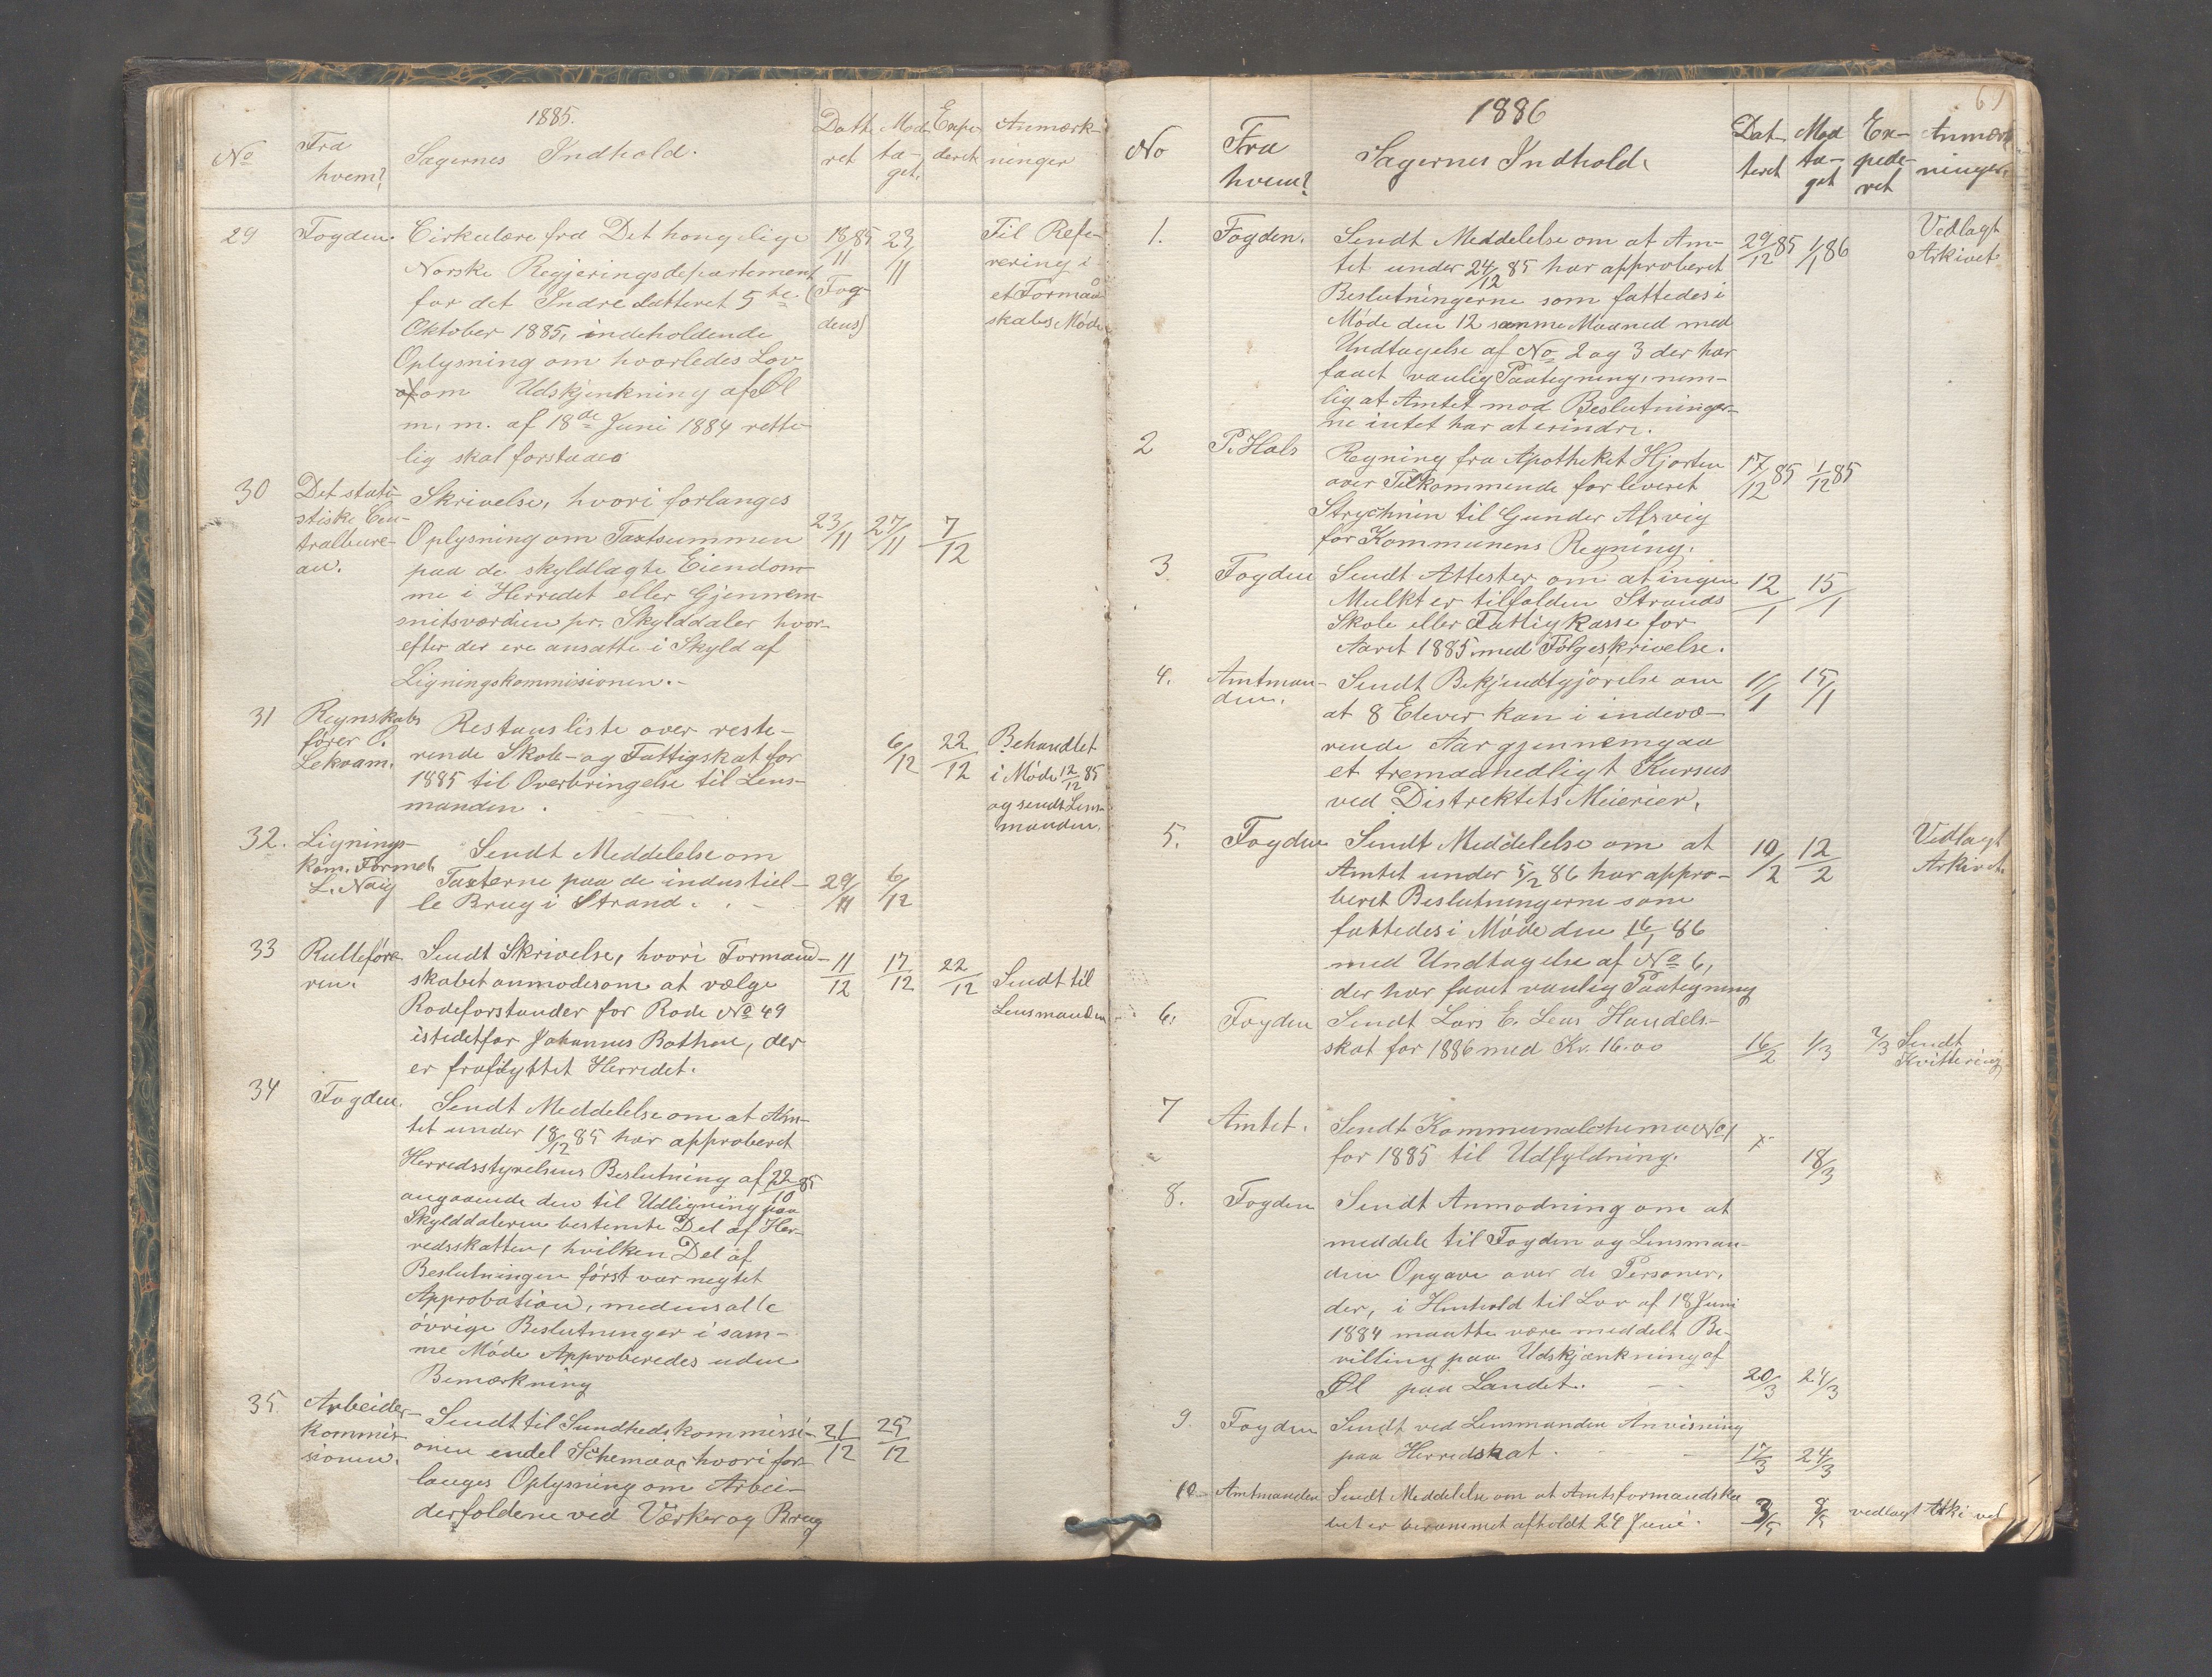 1885.
No
Fra
hvem?
Sagernes Indhold.
Datte
ret
Mod
ta-
get.
Expe
deret
Anmærk-
ninger
29
Fogden.
Cirkulære fra Det kongelige
Norske Regjeringsdepartement
for det Indre datteret 5te
Oktober 1885, indeholdende
Oplysning om hvorledes Lov
om Udskjenkning af Øl
m. m. af 18de Juni 1884 rette-
lig skal forstaaes
18/11 85
(Fog-
dens)
23/11
Til Refe-
rering i
et Formand
skabs Møde
30
Det stati-
stiske Cen-
tralbure-
au.
Skrivelse, hvori forlanges
Oplysning om Taxtsummen
paa de skyldlagte Eiendom-
me i Herredet eller Gjennem-
snitsværdien pr. Skylddaler hvor-
efter der ere ansatte i Skyld af
Ligningskommissionen.-
23/11
27/11
7/12
31
Regnskabs
fører O.
Lekvam.
Restansliste over reste-
rende Skole- og Fattigskat for
1885 til Overbringelse til Lens-
manden.
6/12
22/12
Behandlet
i Møde 12/12 85
og sendt Lens-
manden.
32.
Lignings-
kom. Formd.
L. Naig
Sendt Meddelelse om
Taxterne paa de industiel-
le Brug i Strand.
29/11
6/12
33
Rulleføre-
ren.
Sendt Skrivelse, hvori Formand-
skabet anmodes om at vælge
Rodeforstander for Rode No 49
istedetfor Johannes Bathne, der
er fraflyttet Herredet.
11/12
17/12
22/12
Sendt til
Lensmanden
34
Fogden.
Sendt Meddelelse om at Am-
tet under 18/12 85 har approberet
Herredsstyrelsens Beslutning af 22/10 85
angaaende den til Udligning paa
Skylddaleren bestemte Del af Her-
redsskatten, hvilken Del af
Beslutningen først var negtet
Approbation, medens alle
øvrige Beslutninger i sam-
me Møde Approberedes uden
Bemærkning
35.
Arbeider-
kommis-
sionen.
Sendt til Sundhedskommissi-
onen endel Schemaer hvori for-
langes Oplysning om Arbei-
derfoldene ved Værker og Brug
21/12
25/12
1886
No
Fra
hvem?
Sagernes Indhold.
Dat
teret
Mod
ta-
get
Ex-
pede-
ret
Anmærk-
ninger.
1.
Fogden.
Sendt Meddelelse om at Am-
tet under 24/12 85 har approberet
Beslutningerne som fattedes i
Møde den 12 samme Maaned med
Undtagelse af No 2 og 3 der har
faaet vanlig Paategning, nem-
lig at Amtet mod Beslutninger-
ne intet har at erindre.
29/12 85
1/1 86
Vedlagt
Arkivet
2
P. Hals
Regning fra Apotheket Hjorten
over Tilkommende for leveret
Strychnin til Gunder Alsvig
for Kommunens Regning.
17/12 85
1/12 85
3
Fogden
Sendt Attester om at ingen
Mulkt er tilfalden Strands
Skole eller Fattigkasse for
Aaret 1885 med Følgeskrivelse.
12/1
15/1
4.
Amtman-
den.
Sendt Bekjendtgjørelse om
at 8 Elever kan i indevæ-
rende Aar gjennemgaa
et tremaanedligt Kursus
ved Distrektets Meierier.
11/1
15/1
5.
Fogden
Sendt Meddelelse om at
Amtet under 5/2 86 har appro-
beret Beslutningerne som
fattedes i Møde den 16/1 86
med Undtagelse af No 6,
der har faaet vanlig Paategning
10/2
12/2
Vedlagt
Arkivet.
6.
Fogden
Sendt Lars E. Leas Handels-
skat for 1886 med Kr. 16.00
16/2
1/3
2/3
Sendt
Kvittering
7
Amtet.
Sendt Kommunalschema No 1
for 1885 til Udfyldning.
18/3
8.
Fogden
Sendt Anmodning om at
meddele til Fogden og Lensman-
den Opgave over de Personer,
der, i Henhold til Lov af 18 Juni
1884 maatte være meddelt Be-
villing paa Udskjænkning af
Øl paa Landet.
20/3
24/3
9.
Fogden
Sendt ved Lensmanden Anvisning
paa Herredskat.
17/3
24/3
10
Amtmanden
Sendt Meddelelse om at Amtsformandska
bet er berammet afholdt 24 Juni.
3/5
8/5
vedlagt Arkivet